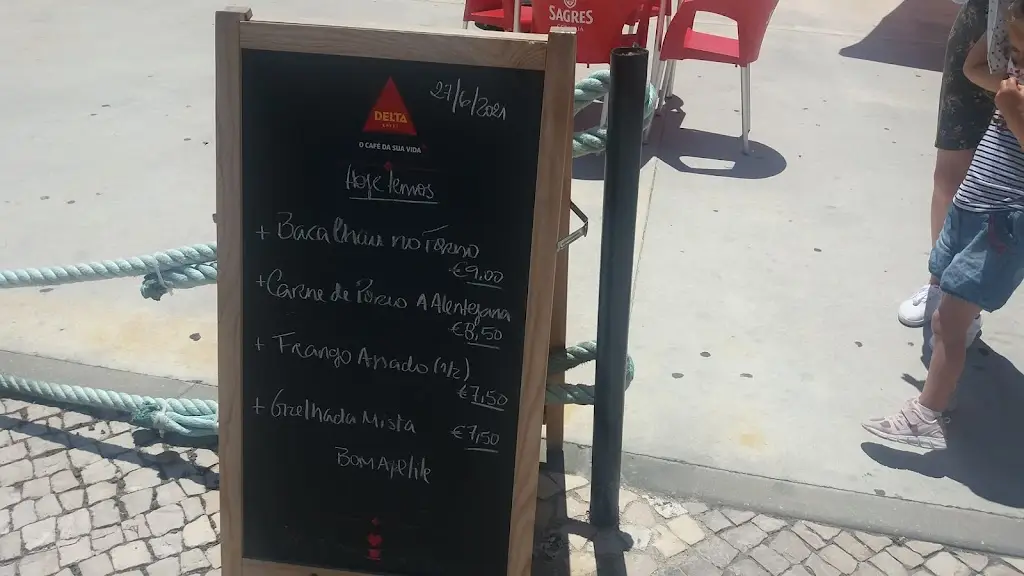 SAGRES
27/6/2021
DELTA
CAFÉS
O CAFÉ DA SUA VIDA
Hoje Temos
+ Bacalhau no Forno
€9,00
+ Carne de Porco A Alentejana
€8,50
+ Frango Assado (1/2)
€7,50
+ Grelhada Mista
€7,50
Bom Apetite